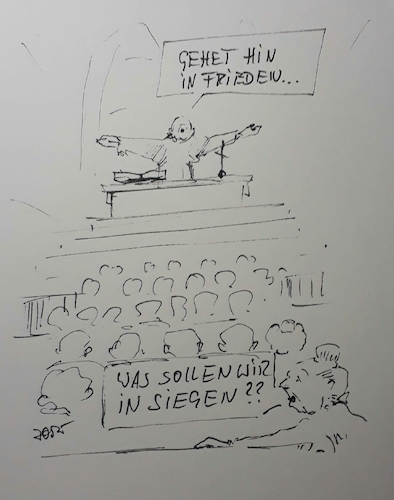 GEHET HIN
IN FRIEDEN...
WAS SOLLEN WIR
IN SIEGEN??